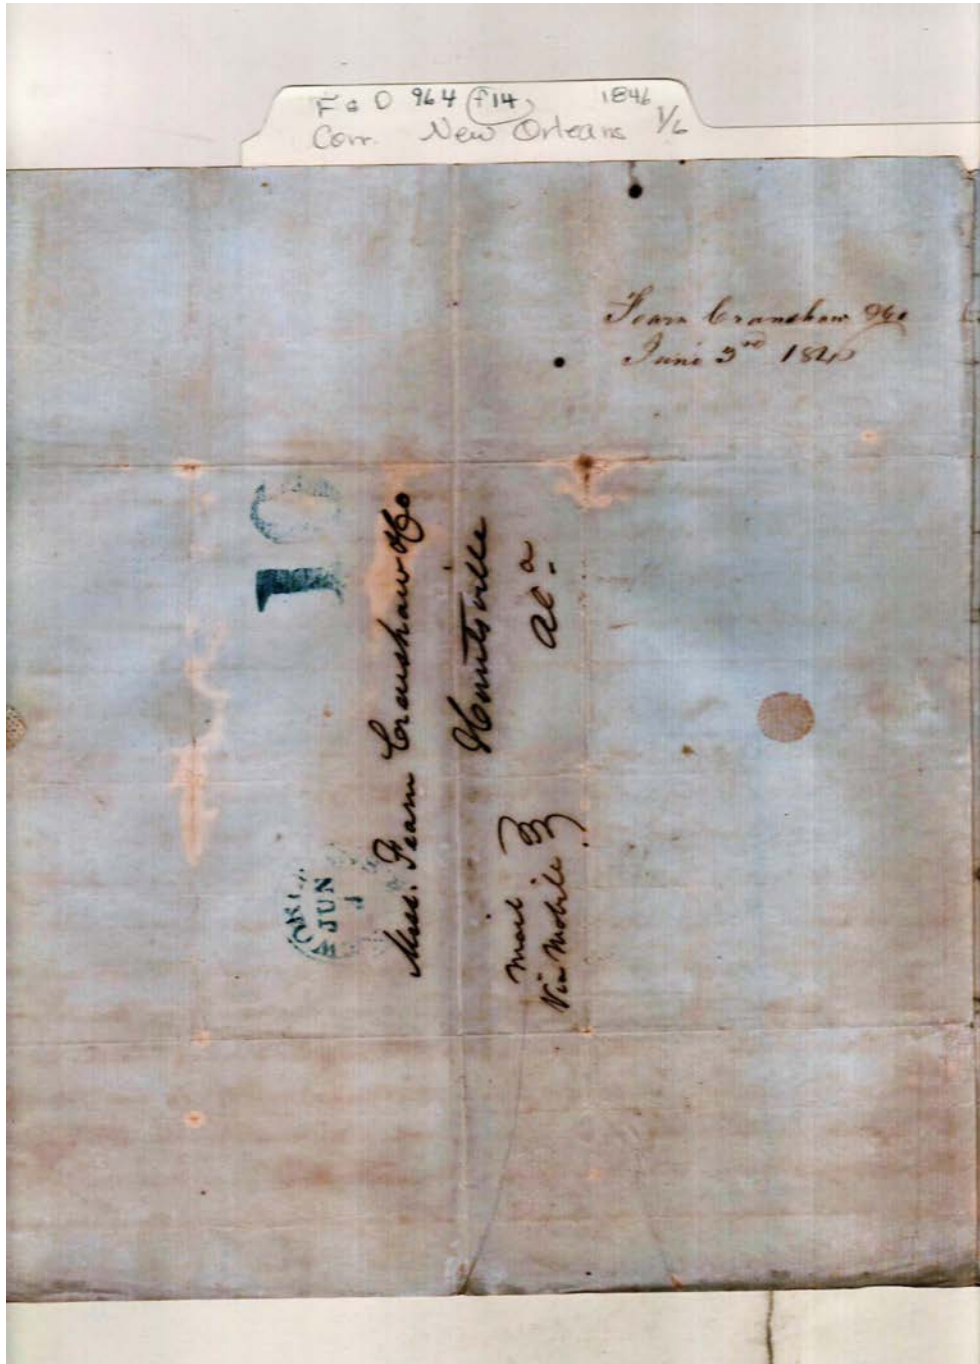 F & D 964 f14 1846
Corr. New Orleans 1/6
Fearn Cranshaw &Co
June 3rd 1846
10
JUN
Mess. Fearn Crenshaw &Co
Huntsville
Ala
Mail
Via Mobile